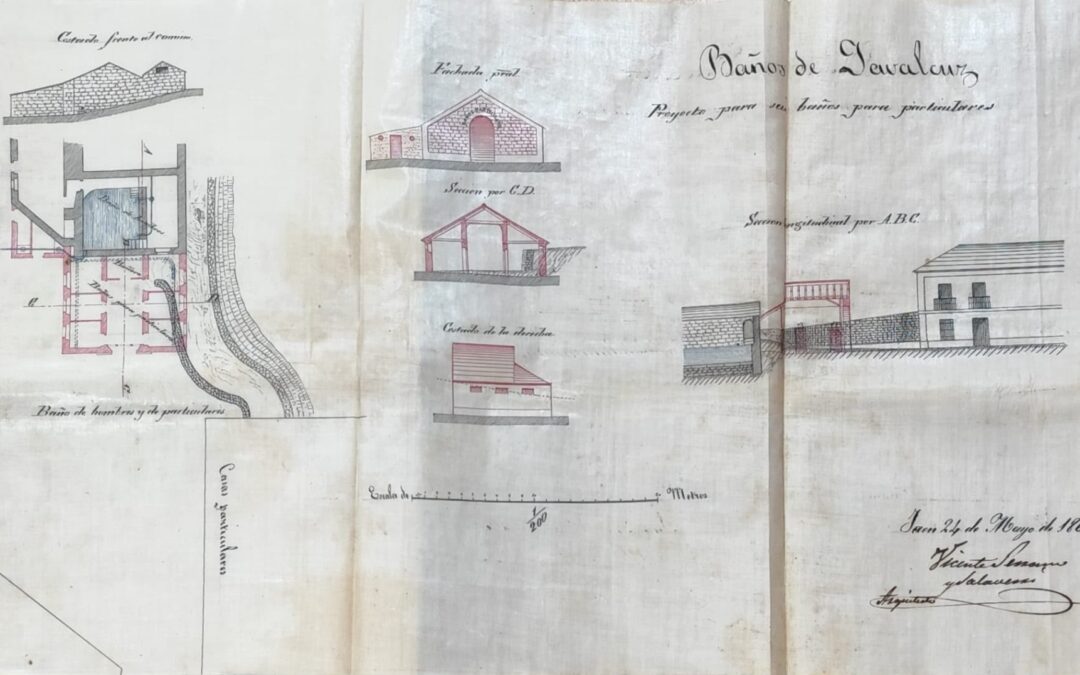 Baños de Javalcuz
Proyecto para seis baños para particulares
Costado frente al camino.
Fachada pral.
Seccion por C.D.
Seccion longitudinal por A.B.C.
Costado de la derecha
Baño de hombres y de particulares
Casas particulares
Escala de
Metros
1/200
Jaen 24 de Mayo de 186
Vicente Serrano
y Salaverri
Arquitecto